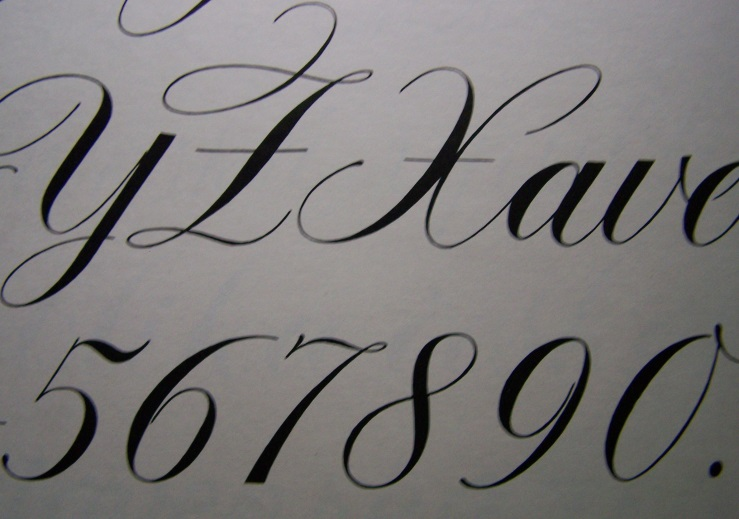 YZXav
567890.